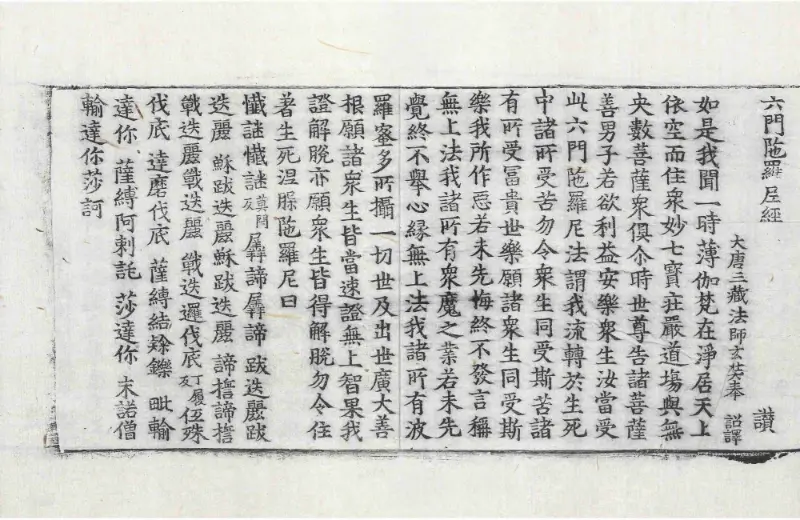 六門陁羅尼經 讃
大唐三藏法師玄奘奉 詔譯
如是我聞一時薄伽梵在淨居天上
依空而住衆妙七寶莊嚴道塲與無
央數菩薩衆俱尒時世尊告諸菩薩
善男子若欲利益安樂衆生汝當受
此六門陁羅尼法謂我流轉於生死
中諸所受苦勿令衆生同受斯苦諸
有所受冨貴世樂願諸衆生同受斯
樂我所作惡若未先悔終不發言稱
無上法我諸所有衆魔之業若未先
覺終不舉心緣無上法我諸所有波
羅蜜多所攝一切世及出世廣大善
根願諸衆生皆當速證無上智果我
證解脫亦願衆生皆得解脫勿令住
著生死涅槃陁羅尼曰
懺謎懺謎莫閇反 羼諦羼諦 跋迭麗跋
迭麗 穌跋迭麗穌跋迭麗 諦揥諦揥
戰迭麗戰迭麗 戰迭邏伐底丁履反 殊
伐底 達磨伐底 薩縛結鑠 毗輸
達你 薩縛阿剌託 莎達你 末諾僧
輸達你莎訶